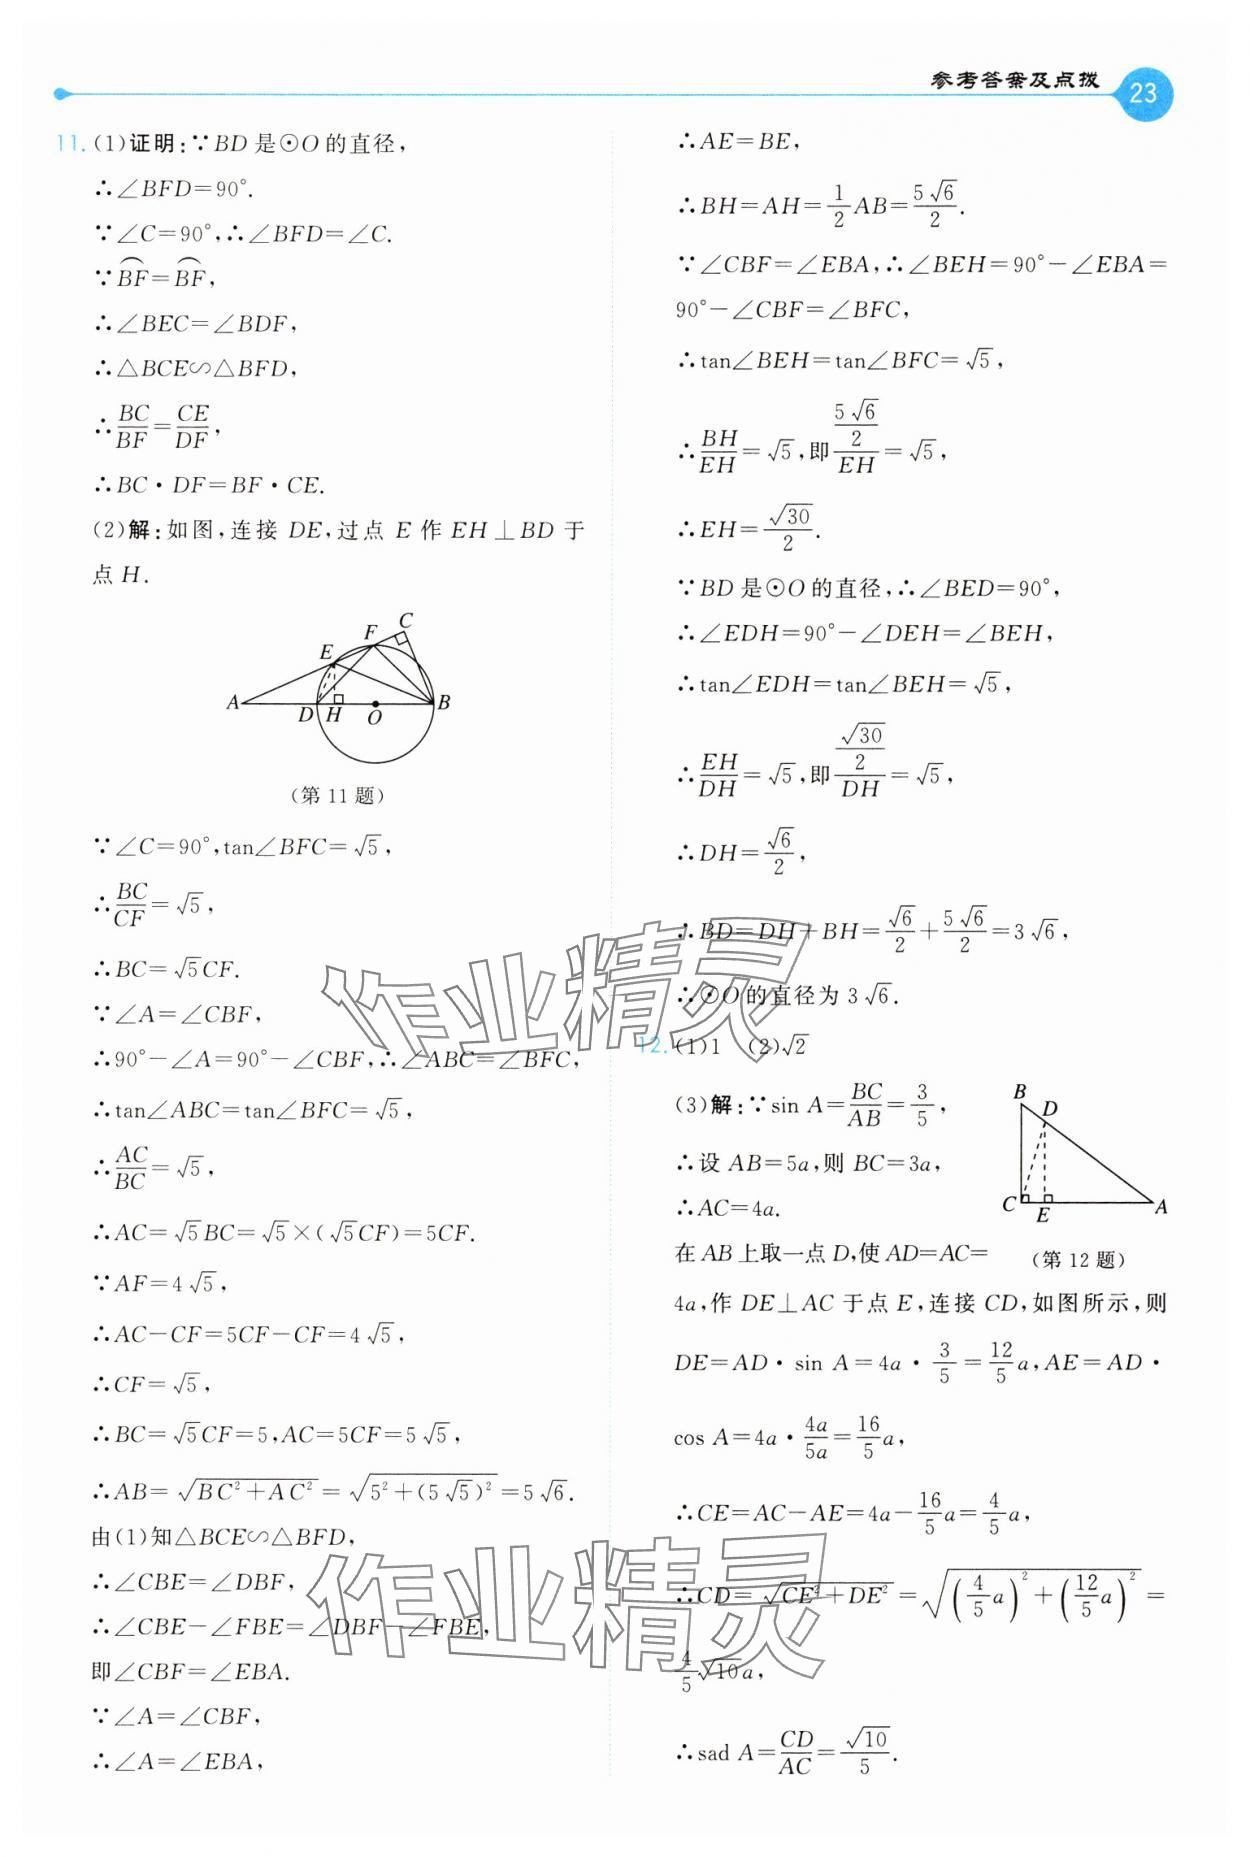 参考答案及点拨
23
11. (1)证明:∵BD 是⊙O 的直径,
∴∠BFD=90°.
∵∠C=90°,∴∠BFD=∠C.
∵⌒BF=⌒BF,
∴∠BEC=∠BDF,
∴△BCE∽△BFD,
∴BC/BF=CE/DF,
∴BC·DF=BF·CE.
(2)解:如图,连接 DE,过点 E 作 EH⊥BD 于
点 H.
A
D
H
O
B
E
F
C
(第 11 题)
∵∠C=90°,tan∠BFC=√5,
∴BC/CF=√5,
∴BC=√5CF.
∵∠A=∠CBF,
∴90°-∠A=90°-∠CBF,∴∠ABC=∠BFC,
∴tan∠ABC=tan∠BFC=√5,
∴AC/BC=√5,
∴AC=√5BC=√5×(√5CF)=5CF.
∵AF=4√5,
∴AC-CF=5CF-CF=4√5,
∴CF=√5,
∴BC=√5CF=5,AC=5CF=5√5,
∴AB=√(BC²+AC²)=√(5²+(5√5)²)=5√6.
由(1)知△BCE∽△BFD,
∴∠CBE=∠DBF,
∴∠CBE-∠FBE=∠DBF-∠FBE,
即∠CBF=∠EBA.
∵∠A=∠CBF,
∴∠A=∠EBA,
∴AE=BE,
∴BH=AH=1/2AB=5√6/2.
∵∠CBF=∠EBA,∴∠BEH=90°-∠EBA=
90°-∠CBF=∠BFC,
∴tan∠BEH=tan∠BFC=√5,
∴BH/EH=√5,即(5√6/2)/EH=√5,
∴EH=√30/2.
∵BD 是⊙O 的直径,∴∠BED=90°,
∴∠EDH=90°-∠DEH=∠BEH,
∴tan∠EDH=tan∠BEH=√5,
∴EH/DH=√5,即(√30/2)/DH=√5,
∴DH=√6/2,
∴BD=DH+BH=√6/2+5√6/2=3√6,
∴⊙O 的直径为 3√6.
12. (1)1 (2)√2
(3)解:∵sin A=BC/AB=3/5,
∴设 AB=5a,则 BC=3a,
∴AC=4a.
B
D
C
E
A
(第 12 题)
在 AB 上取一点 D,使 AD=AC=
4a,作 DE⊥AC 于点 E,连接 CD,如图所示,则
DE=AD·sin A=4a·3/5=12/5a,AE=AD·
cos A=4a·4a/5a=16/5a,
∴CE=AC-AE=4a-16/5a=4/5a,
∴CD=√(CE²+DE²)=√((4/5a)²+(12/5a)²)=
4/5√10a,
∴sad A=CD/AC=√10/5.
作业精灵
作业精灵